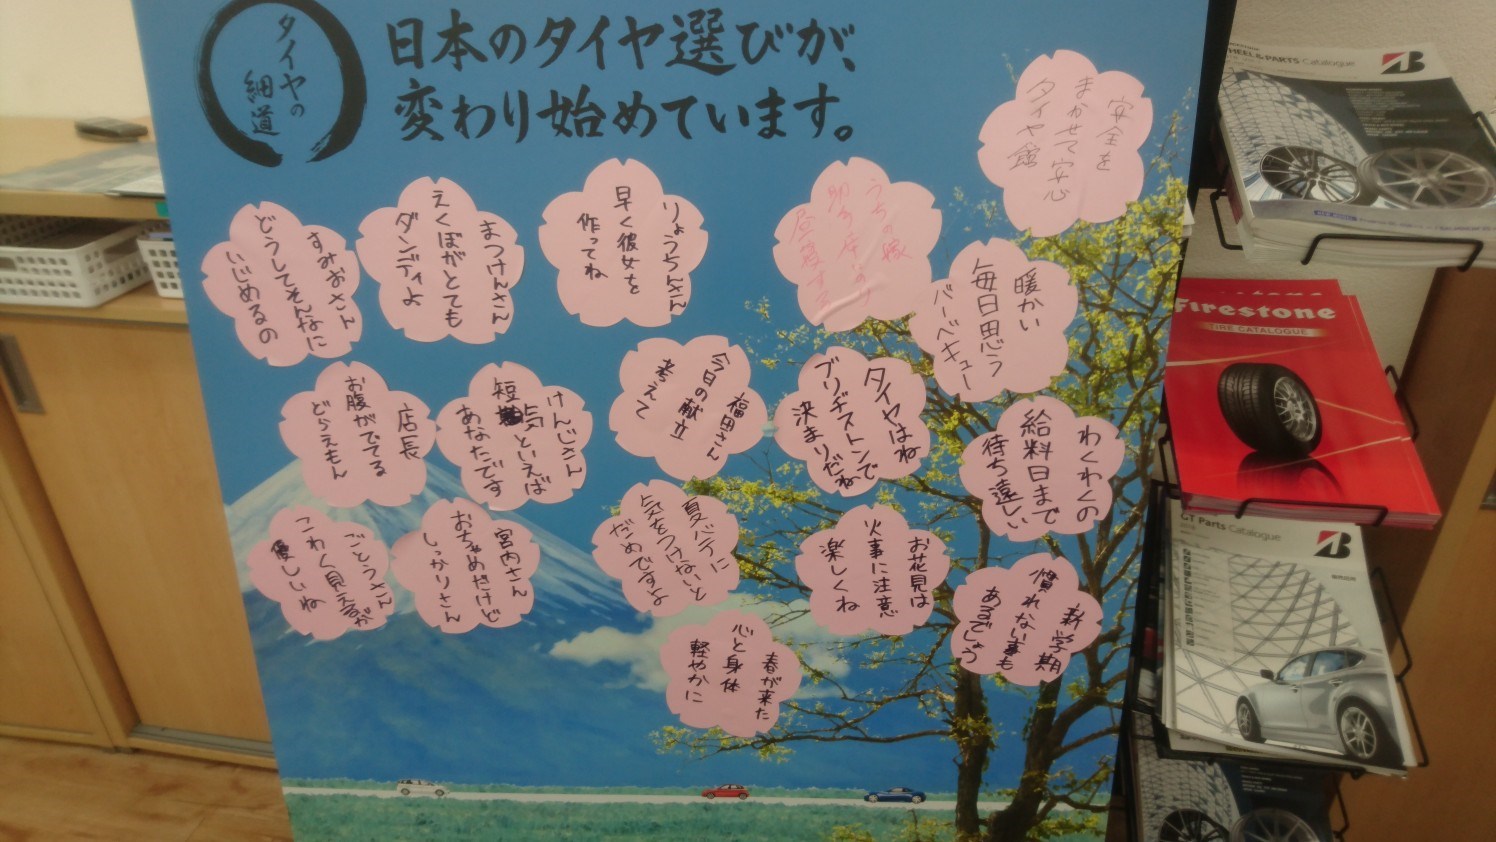 タイヤの
細道
日本のタイヤ選びが、
変わり始めています。
安全を
まかせて安心
タイヤ館
すみおさん
どうしてそんなに
いじめるの
まつけんさん
えくぼがとても
ダンディよ
りょうちんさん
早く彼女を
作ってね
うちの嫁
暖かい
毎日思う
バーベキュー
店長
お腹がでてる
どらえもん
けんじさん
短気といえば
あなたです
福田さん
今日の献立
考えて
タイヤはね
ブリヂストンで
決まりだね
わくわくの
給料日まで
待ち遠しい
ごとうさん
こわく見えるが
優しいね
宮内さん
おちゃめやけど
しっかりさん
夏バテに
気をつけないと
だめですよ
お花見は
火事に注意
楽しくね
新学期
慣れない事も
あるでしょう
春が来た
心と身体
軽やかに
WHEEL&PARTS Catalogue
B
Firestone
TIRE CATALOGUE
GT Parts Catalogue
B